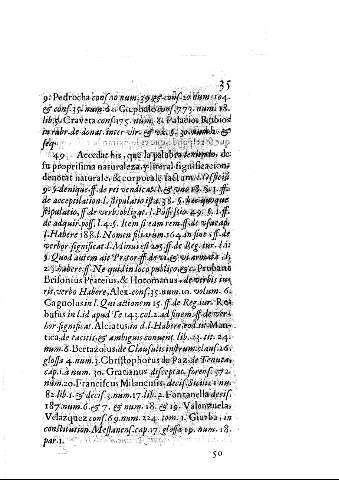 35
9. Pedrocha cons. 20 num. 39 & cons. 20 num. 104.
& cons. 35. num. 6. Gurpholo cons. 773. num. 18.
lib. 5. Craveta cons. 175. num. 8. Palacios Rubios
in rubr. de donat. inter vir. & ux. §. num.
seq.
49 Accedat his, que la palabra teniendo, de
su propriisima naturaleza, y literal significacion,
denotat naturale, & corporale factum.
9. denique. ff. de rei vendicat. l. & uno 18. §. 1. ff.
de acceptilation. l. stipulatio ista 38. §. hec quoque
stipulatio, ff. de verb. obligat. l. Possessio. 49. §. 1. ff.
de adquir. poss. l. 4. §. Item si rem rem. ff. de usucap.
l. Habere 188. l. Nomen filiarum 164. in fine ff. de
verbor significat. l. Adimus est 205. ff. de Reg. iur. l. 1.
§. Quod autem ait Prætor ff. de vi & vi armata l.
2. §. habere. ff. Ne quid in loco publico, & c. Probant
Brisonius Prateius, & Hotomanus de verbis iu-
ris. verbo Habere, Alex. cons. 35. num. 10. volum. 6.
Cagnolus in l. Qui actionem 15. ff. de Reg. iur. Re-
bufus in l. id apud Te 143. col. 2. ad finem. ff. de ver-
bor significat. Alciatus in d. l. Habere eod. tit. Man-
tica de tacitis & ambiguis convent. lib. 23. tit. 24.
num. 6. Bertazolus de Clausulis instrum. claus. 26.
glossa 4. num. 3. Christophorus de Paz. de Tenuta,
cap. 1. à num. 30. Gratianus disceptat. forens. 372.
num. 20. Franciscus Milanensis, decis. Siciliæ 1. num.
82. lib. 1. & decis. 3. num. 17. lib. 2. Fontanella decis.
187. num. 6. & 7. & num. 18. & 19. Valonzuela,
Velazquez cons. 69. num. 224. tom. 1. Giurba, in
constitution. Messanens. cap. 17. glossa 19. num. 18.
par. 1.
50